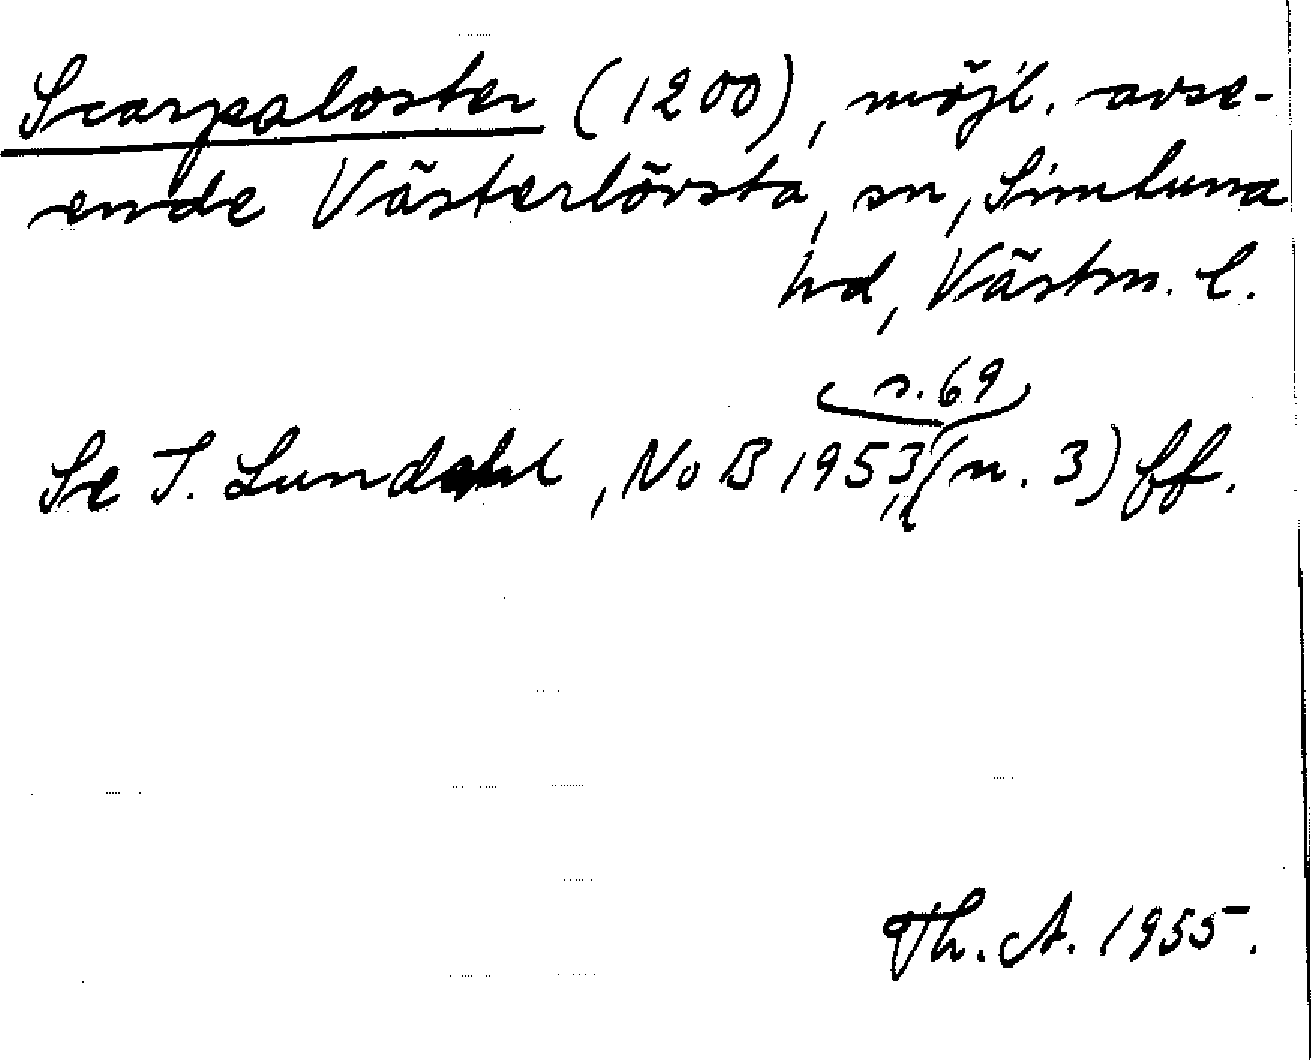 Scarpaloster (1200), möjl. avse-
ende Västerlövsta, sn, Simtuna
hd, Västm. l.
s. 69
Se I. Lundahl, NoB 1953, (n. 3) ff.
Th. A. 1955.